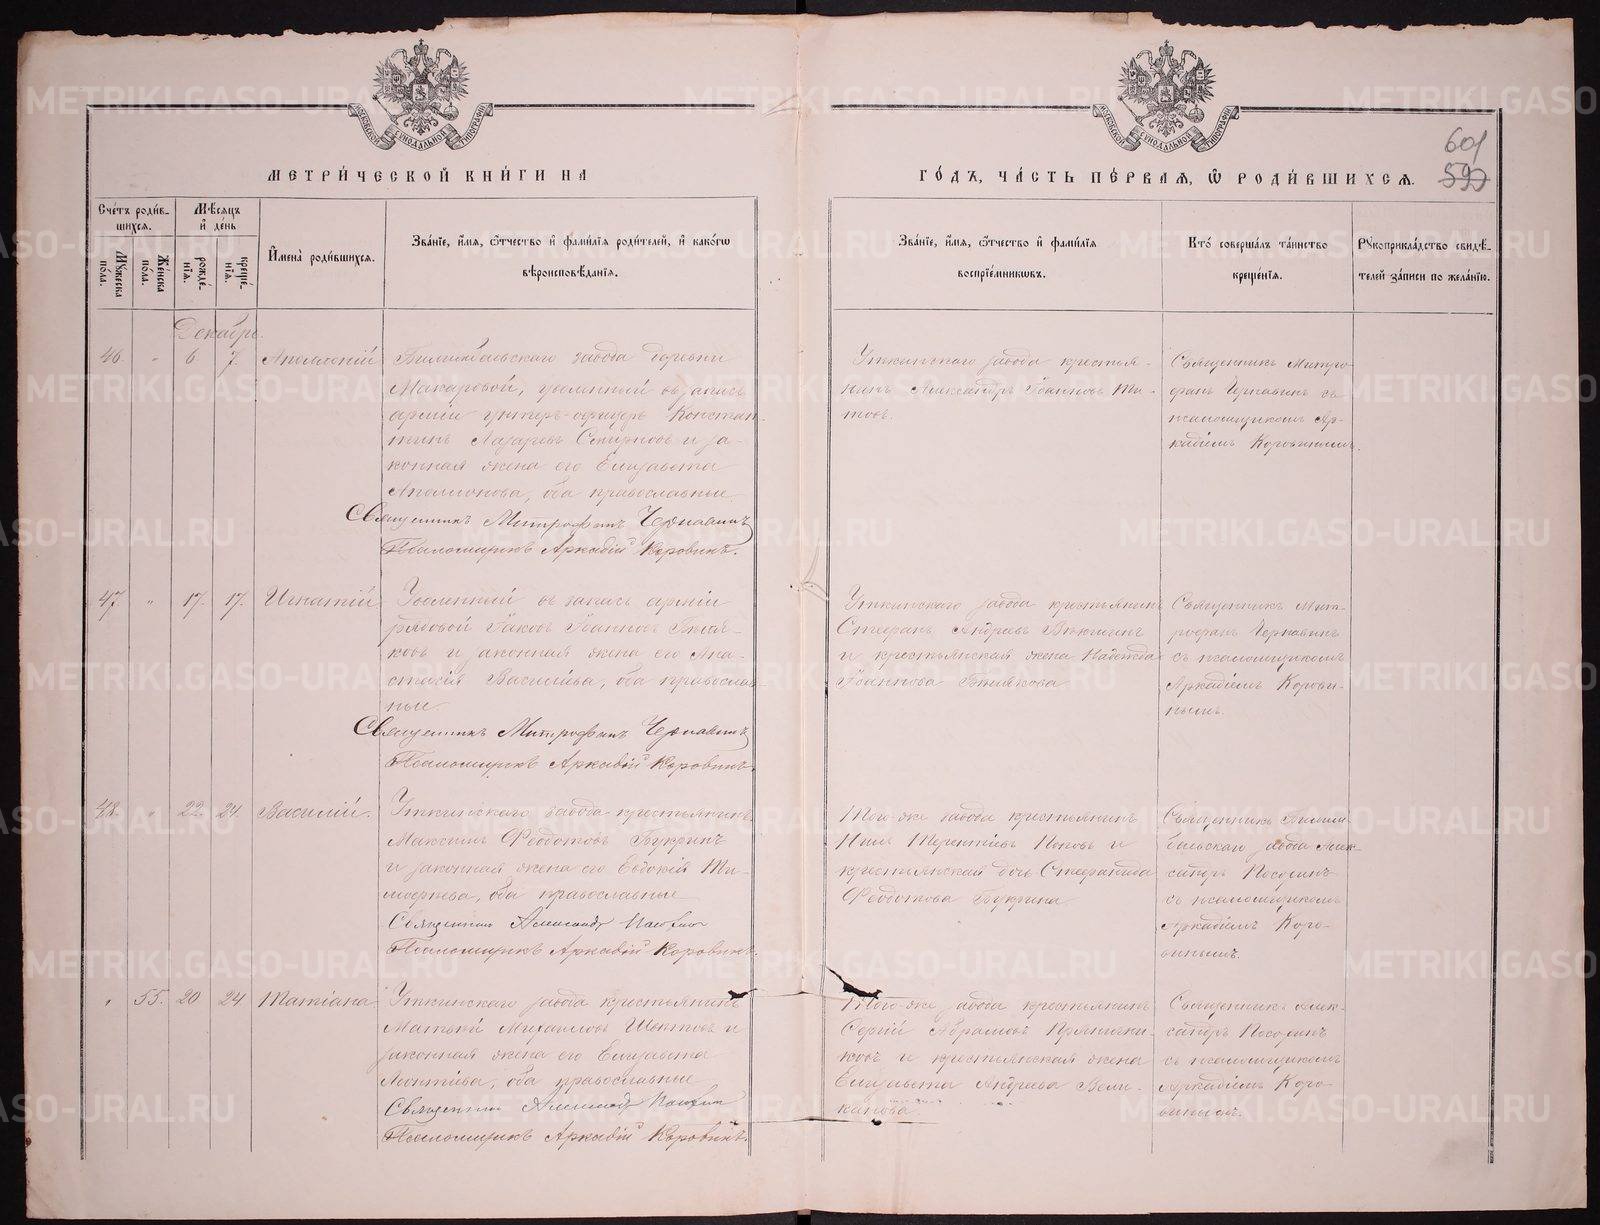 МЕТРИ́ЧЕСКОЙ КНИ́ГИ НА
ГО́ДЪ, ЧА́СТЬ ПЕ́РВАЯ, Ѽ РОДИ́ВШИХСЯ.
601
599
Сче́тъ роди́в-
шихся.
Му́жеска по́ла.
Же́нска по́ла.
Мѣ́сяцъ и҆ де́нь
рожде́-нїя.
креще́-нїя.
И҆мена̀ роди́вшихся.
Зва́нїе, и҆́мя, ѻ҆́тчество и҆ фами́лїя роди́телей, и҆ како́гѡ
вѣроисповѣ́данїя.
Зва́нїе, и҆́мя, ѻ҆́тчество и҆ фами́лїя
воспрїе́мникѡвъ.
Кто̀ соверша́лъ та́инство
креще́нїя.
Рꙋкоприкла́дство свидѣ́-
телей за́писи по жела́нїю.
Декабрь.
46 " 6 7 Аполлоній
Билимбаевскаго завода деревни
Макаровой, уволенный въ запасъ
арміи унтеръ-офицеръ Констан
тинъ Лазаревъ Смирновъ и за-
конная жена его Елизавета
Аполлонова, оба православные.
Священникъ Митрофанъ Чернавинъ
Псаломщикъ Аркадій Коровинъ.
Уткинскаго завода крестья-
нинъ Александръ Іоанновъ Ти-
товъ.
Священникъ Митро-
фанъ Чернавинъ съ
псаломщикомъ Ар-
кадіемъ Коровинымъ.
47 " 17. 17. Игнатій
Уволенный въ запасъ арміи
рядовой Іаковъ Іоанновъ
и законная жена его Ана-
стасія Васильева, оба православ
ные.
Священникъ Митрофанъ Чернавинъ
Псаломщикъ Аркадій Коровинъ.
Уткинскаго завода крестьянинъ
Стефанъ Андреевъ
и крестьянская жена Надежда
Іоаннова
Священникъ Мит-
рофанъ Чернавинъ
съ псаломщикомъ
Аркадіемъ Корови-
нымъ.
48. " 22. 24. Василій.
Уткинскаго завода крестьянинъ
Максимъ Ѳедотовъ Букринъ
и законная жена его Евдокія Ти-
моѳеева, оба православные
Священникъ Александръ
Псаломщикъ Аркадій Коровинъ.
Того-же завода крестьянинъ
Нилъ Терентіевъ Поповъ и
крестьянская дочь Стефанида
Ѳедотова Букрина.
Священникъ Билим
баевскаго завода Алек-
сандръ
съ псаломщикомъ
Аркадіемъ Коро-
винымъ.
" 55. 20 24 Татіана
Уткинскаго завода крестьянинъ
Матѳей Михаиловъ и
законная жена его Елизавета
Леонтіева, оба православные
Священникъ Александръ
Псаломщикъ Аркадій Коровинъ.
Того-же завода крестьянинъ
Сергій Абрамовъ Пряничник-
ковъ и крестьянская жена
Елизавета Андреева Вели-
канова.
Священникъ Алек-
сандръ
съ псаломщикомъ
Аркадіемъ Коро-
винымъ.
METRIKI.GASO-URAL.RU